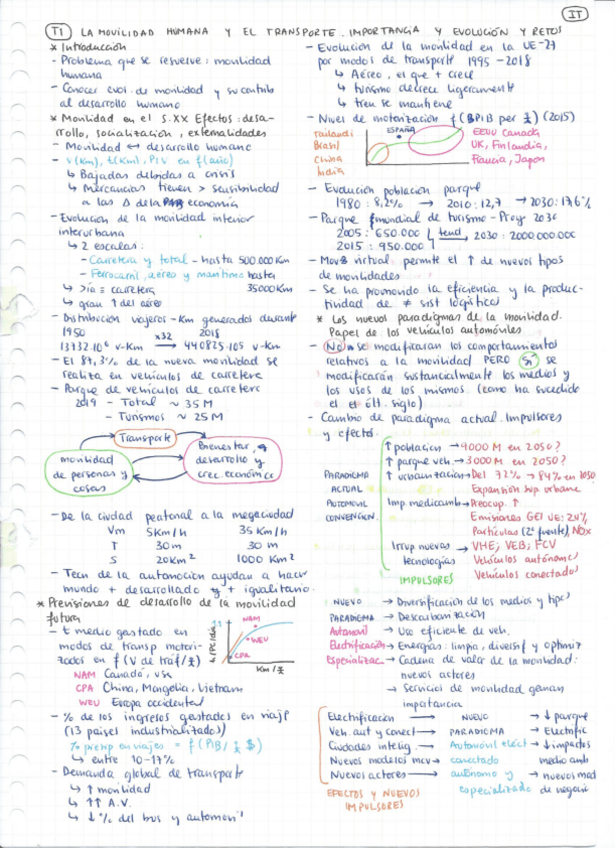 IT
T1 LA MOVILIDAD HUMANA Y EL TRANSPORTE. IMPORTANCIA Y EVOLUCIÓN Y RETOS
* Introducción
- Problema que se resuelve: movilidad
humana
- Conocer evol. de movilidad y su contrib
al desarrollo humano
* Movilidad en el S.XX Efectos: desa-
rrollo, socialización, externalidades
- Movilidad ↔ desarrollo humano
- V(Km), t(Km), PIV en f(año)
↳ Bajadas debidas a crisis
↳ Mercancías tienen > sensibilidad
a las Δ de la economía
- Evolución de la movilidad interior
interurbana
↳ 2 escalas:
- Carretera y total - hasta 500.000 Km
- Ferrocarril, aéreo y marítimo hasta
35000 Km
↳ >ía ≡ carretera
↳ gran ↑ del aéreo
- Distribución viajeros - Km generados durante
1950 2018
13732.10⁶ v-Km x32 → 440825.10⁶ v-Km
- El 87,3% de la nueva movilidad se
realiza en vehículos de carretera
- Parque de vehículos de carretera
2019 - Total ~ 35 M
- Turismos ~ 25 M
Transporte
movilidad
de personas y
cosas
Bienestar,
desarrollo y
crec. económico
- De la ciudad peatonal a la megaciudad
Vm 5 Km/h 35 Km/h
T 30 m 30 m
S 20 Km² 1000 Km²
- Tecn de la automoción ayudan a hacer
mundo + desarrollado y + igualitario.
* Previsiones de desarrollo de la movilidad
futura
- t medio gastado en
modos de transp motori-
zados en f(V de tráf/
NAM
WEU
CPA
NAM Canadá, USA
CPA China, Mongolia, Vietnam
WEU Europa occidental
- % de los ingresos gastados en viaje
(13 países industrializados)
en viajes = f(PIB/
↳ entre 10-17%
- Demanda global de transporte
↳ ↑ movilidad
↳ ↑↑ A.V.
↳ ↓ % del bus y automóvil
- Evolución de la movilidad en la UE-27
por modos de transporte 1995 - 2018
↳ Aéreo, el que + crece
↳ turismo decrece ligeramente
↳ tren se mantiene
- Nivel de motorización f(BPIB per (2015)
Tailandi
Brasil
China
India
ESPAÑA
EEUU Canadá
UK, Finlandia,
Francia, Japón
- Evolución población parque
1980: 8,2% → 2010: 12,7 → 2030: 17,6%
- Parque mundial de turismo - Proy 2030
2005: 650.000 tend → 2030: 2000.000.000
2015: 950.000
- Mov virtual permite el ↑ de nuevos tipos
de movilidades
- Se ha promovido la eficiencia y la produc-
tividad de ≠ sist logísticos
* Los nuevos paradigmas de la movilidad.
Papel de los vehículos automóviles
- No se modificaran los comportamientos
relativos a la movilidad PERO sí se
modificarán sustancialmente los medios y
los usos de los mismos (como ha sucedido
el últ. siglo)
- Cambio de paradigma actual. Impulsores
y efectos.
PARADIGMA
ACTUAL
AUTOMÓVIL
CONVENCION.
↑ población → 9000 M en 2050?
↑ parque veh. → 3000 M en 2050?
↑ urbanización → Del 72% → 84% en 2050
Expansión sup urbana
Imp medioamb → Preocup. ↑
Emisiones GEI UE: 24%
Partículas (2ª fuente), NOx
Irrup nuevas → VHE; VEB; FCV
tecnologías Vehículos autónomos
Vehículos conectados
IMPULSORES
NUEVO → Diversificación de los medios y tipos
PARADIGMA → Descarbonización
Automóvil → Uso eficiente de veh.
Electrificación → Energías: limpia, diversif y optimiz
Especializac. → Cadena de valor de la movilidad:
nuevos actores
→ Servicios de movilidad ganan
importancia
Electrificación → NUEVO → ↓ parque
Veh. aut y conect → PARADIGMA → Electrific
Ciudades intelig. → Automóvil eléct → ↓ impactos
Nuevos modelos mov → conectado medio amb
Nuevos actores → autónomo y → nuevos mod
especializado de negocio
EFECTOS Y NUEVOS
IMPULSORES